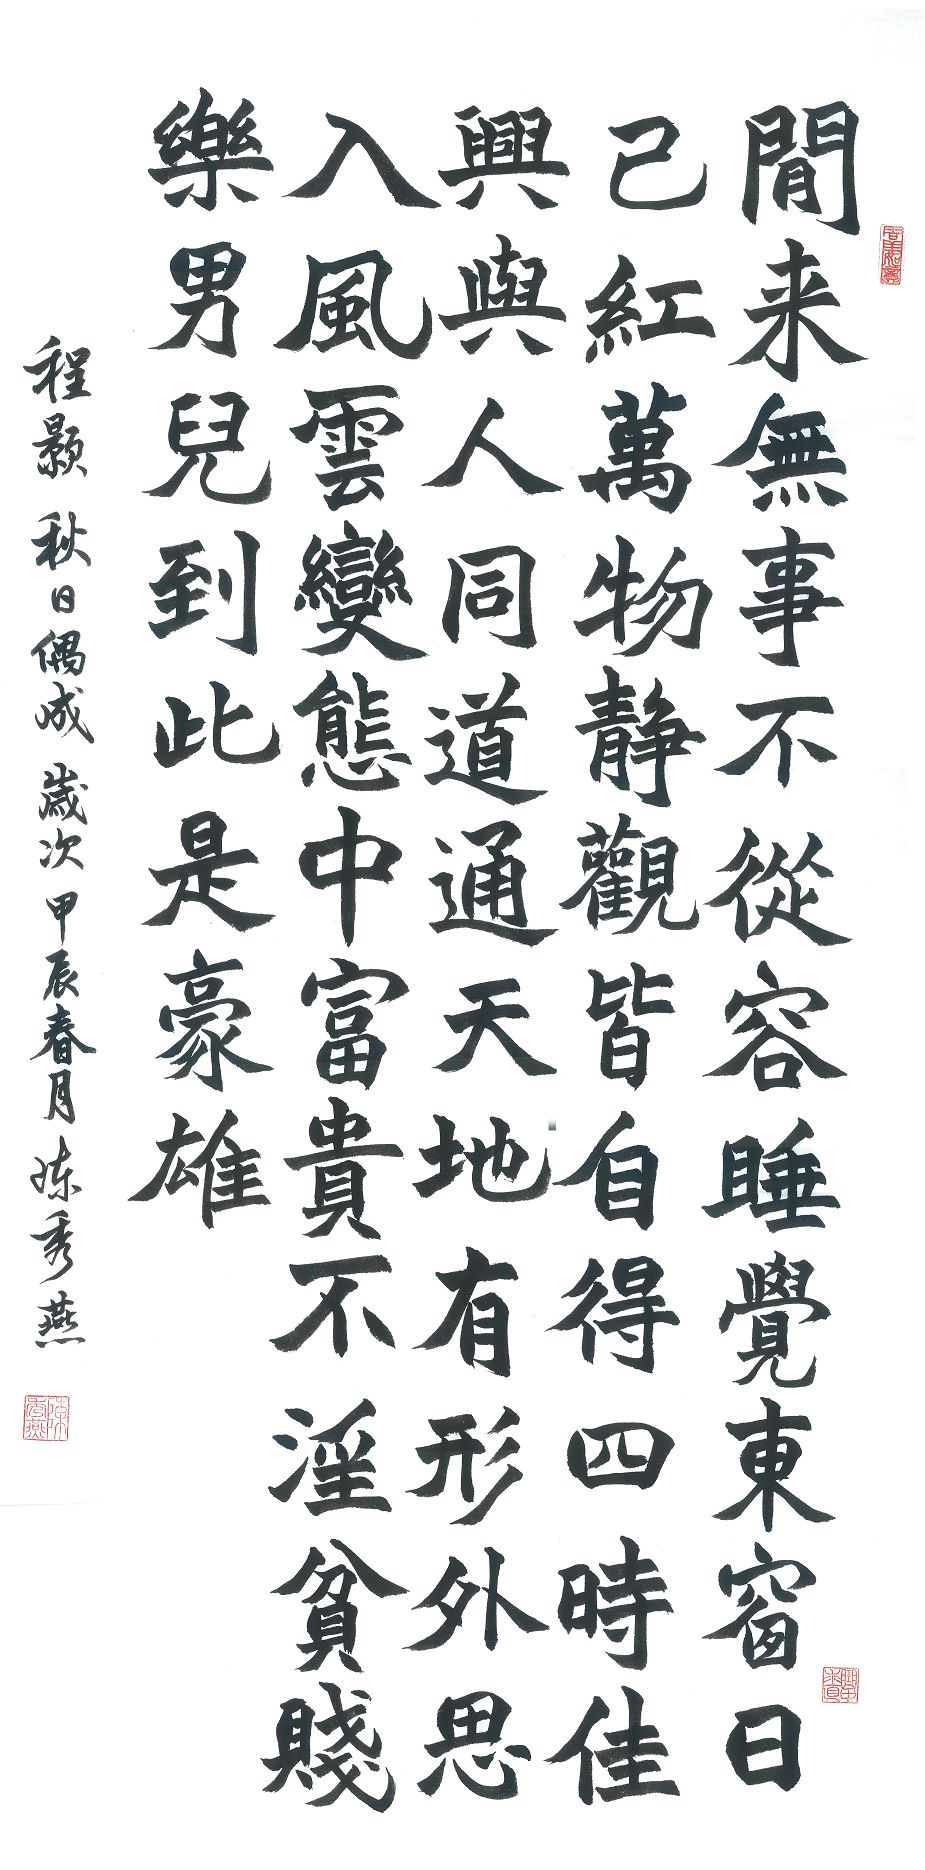 閒来無事不從容睡覺東窗日
已紅萬物静觀皆自得四時佳
興與人同道通天地有形外思
入風雲變態中富貴不淫貧賤
樂男兒到此是豪雄
程顥 秋日偶成 歲次甲辰春月 陳秀燕
陳秀燕